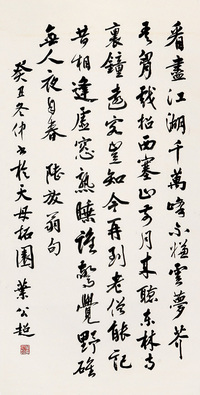 看盡江湖千萬峰不嫌雲夢芥
吾胸戲招西塞山前月來聽東林寺
裏鐘遠客豈知今再到老僧能記
昔相逢虛窗熟睡誰驚覺野碓
無人夜自舂 陸放翁句
癸丑冬仲書於天母拓園 葉公超